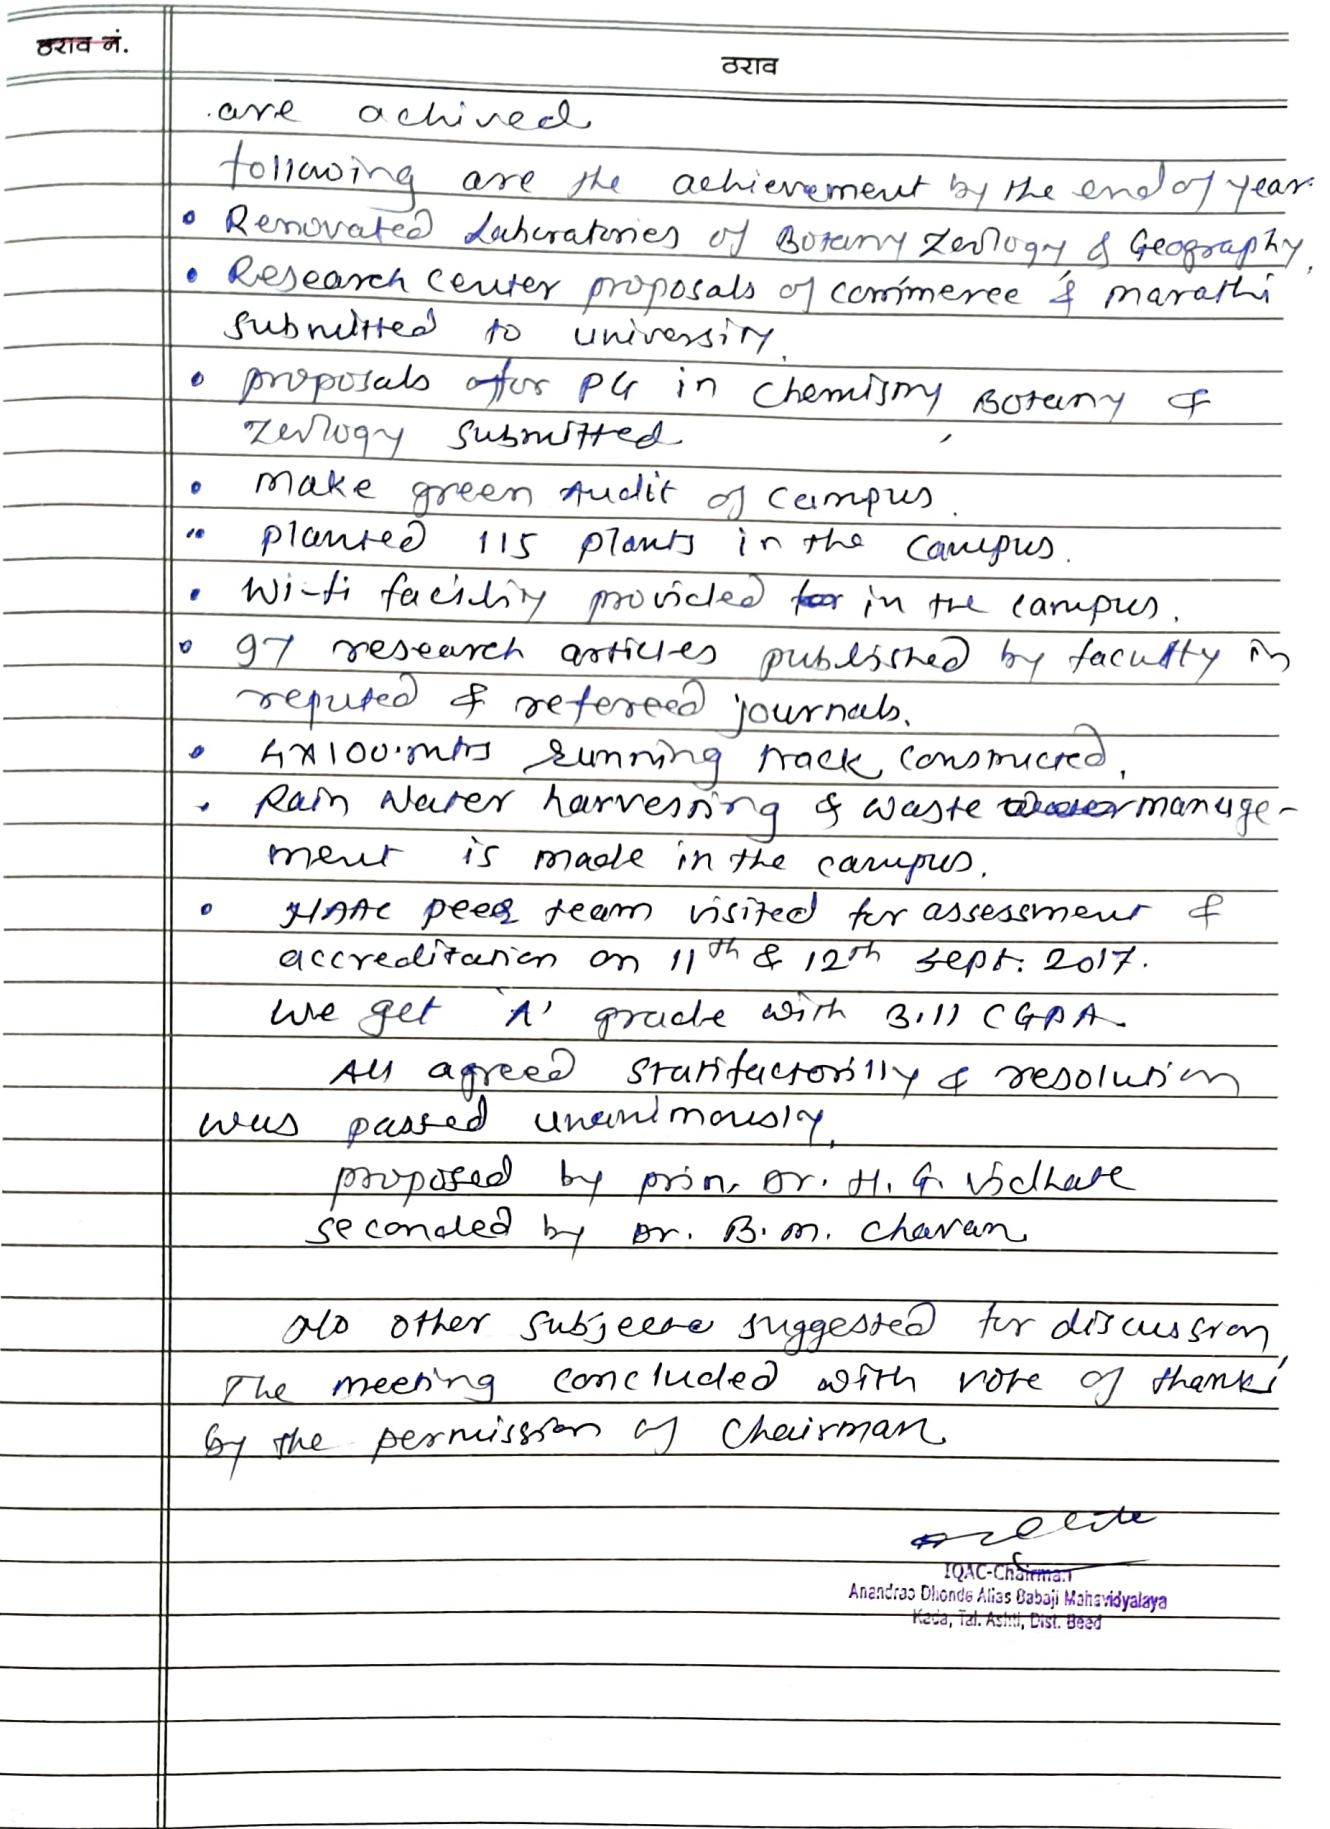 ठराव नं.
ठराव
are achived
following are the achievement by the end of year.
• Renovated Laboratories of Botany Zoology & Geography.
• Research center proposals of commerce & marathi
submitted to university.
• proposals for PG in Chemistry, Botany &
Zoology submitted
• make green Audit of campus.
• planted 115 plants in the campus.
• Wi-fi facility provided in the campus.
• 97 research articles published by faculty in
reputed & refereed journals.
• 4x100.mtrs running track constructed.
• Rain Water harvesting & waste manage-
ment is made in the campus.
• NAAC peer team visited for assessment &
accreditation on 11th & 12th Sept. 2017.
We get 'A' grade with 3.11 CGPA.
All agreed statifactorilly & resolution
was passed unanimously.
proposed by prin. Dr. H. G. Vidhate
seconded by Dr. B. M. Chavan
No other subjecte suggested for discussion,
The meeting concluded with vote of thanks
by the permission of Chairman
IQAC-Chairman
Anandrao Dhonde Alias Babaji Mahavidyalaya
Kada, Tal. Ashti, Dist. Beed